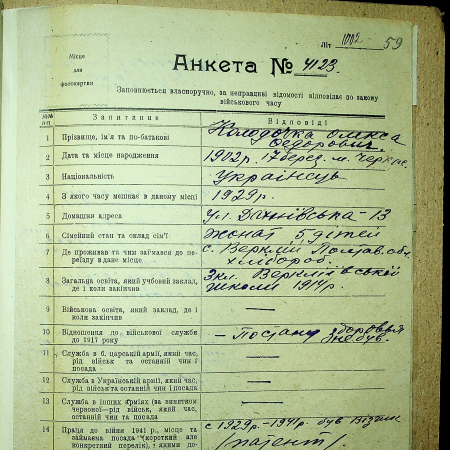 Літ 1002 59
Місце
для
фотокартки
Анкета № 4123.
Заповнюється власноручно, за неправдиві відомості відповідає по закону
військового часу
№№ п-п Запитання Відповіді
1 Прізвище, ім'я та по-батькові Колодочка Олекса
Федорович.
2 Дата та місце народження 1902 р. 17 берез. м. Черкас
3 Національність Українець
4 З якого часу мешкає в даному місці 1929 р.
5 Домашня адреса Ул. Дахнівська - 13
6 Сімейний стан та склад сім'ї жонат 5 дітей
7 Де проживав та чим займався до переїзду в дане місце с. Верклій, Полтав. обл.
хлібороб.
8 Загальна освіта, який учбовий заклад, де і коли закінчив 3 кл. Верклиївської
школи 1914 р.
9 Військова освіта, який заклад, де і коли закінчив —
10 Відношення до військової служби до 1917 року — По стану здоровья
не був.
11 Служба в б. царській армії, який час, рід військ та останній чин і посада —
12 Служба в Українській армії, який час, рід військ та останній чин і посада —
13 Служба в інших арміях (за винятком червоної—рід військ, який час, останній чин та посада —
14 Праця до війни 1941 р., місце та займаєма посада (короткий але конкретний перелік), з якими до- с 1929 р. - 1941 р. був Візник
/патент/.